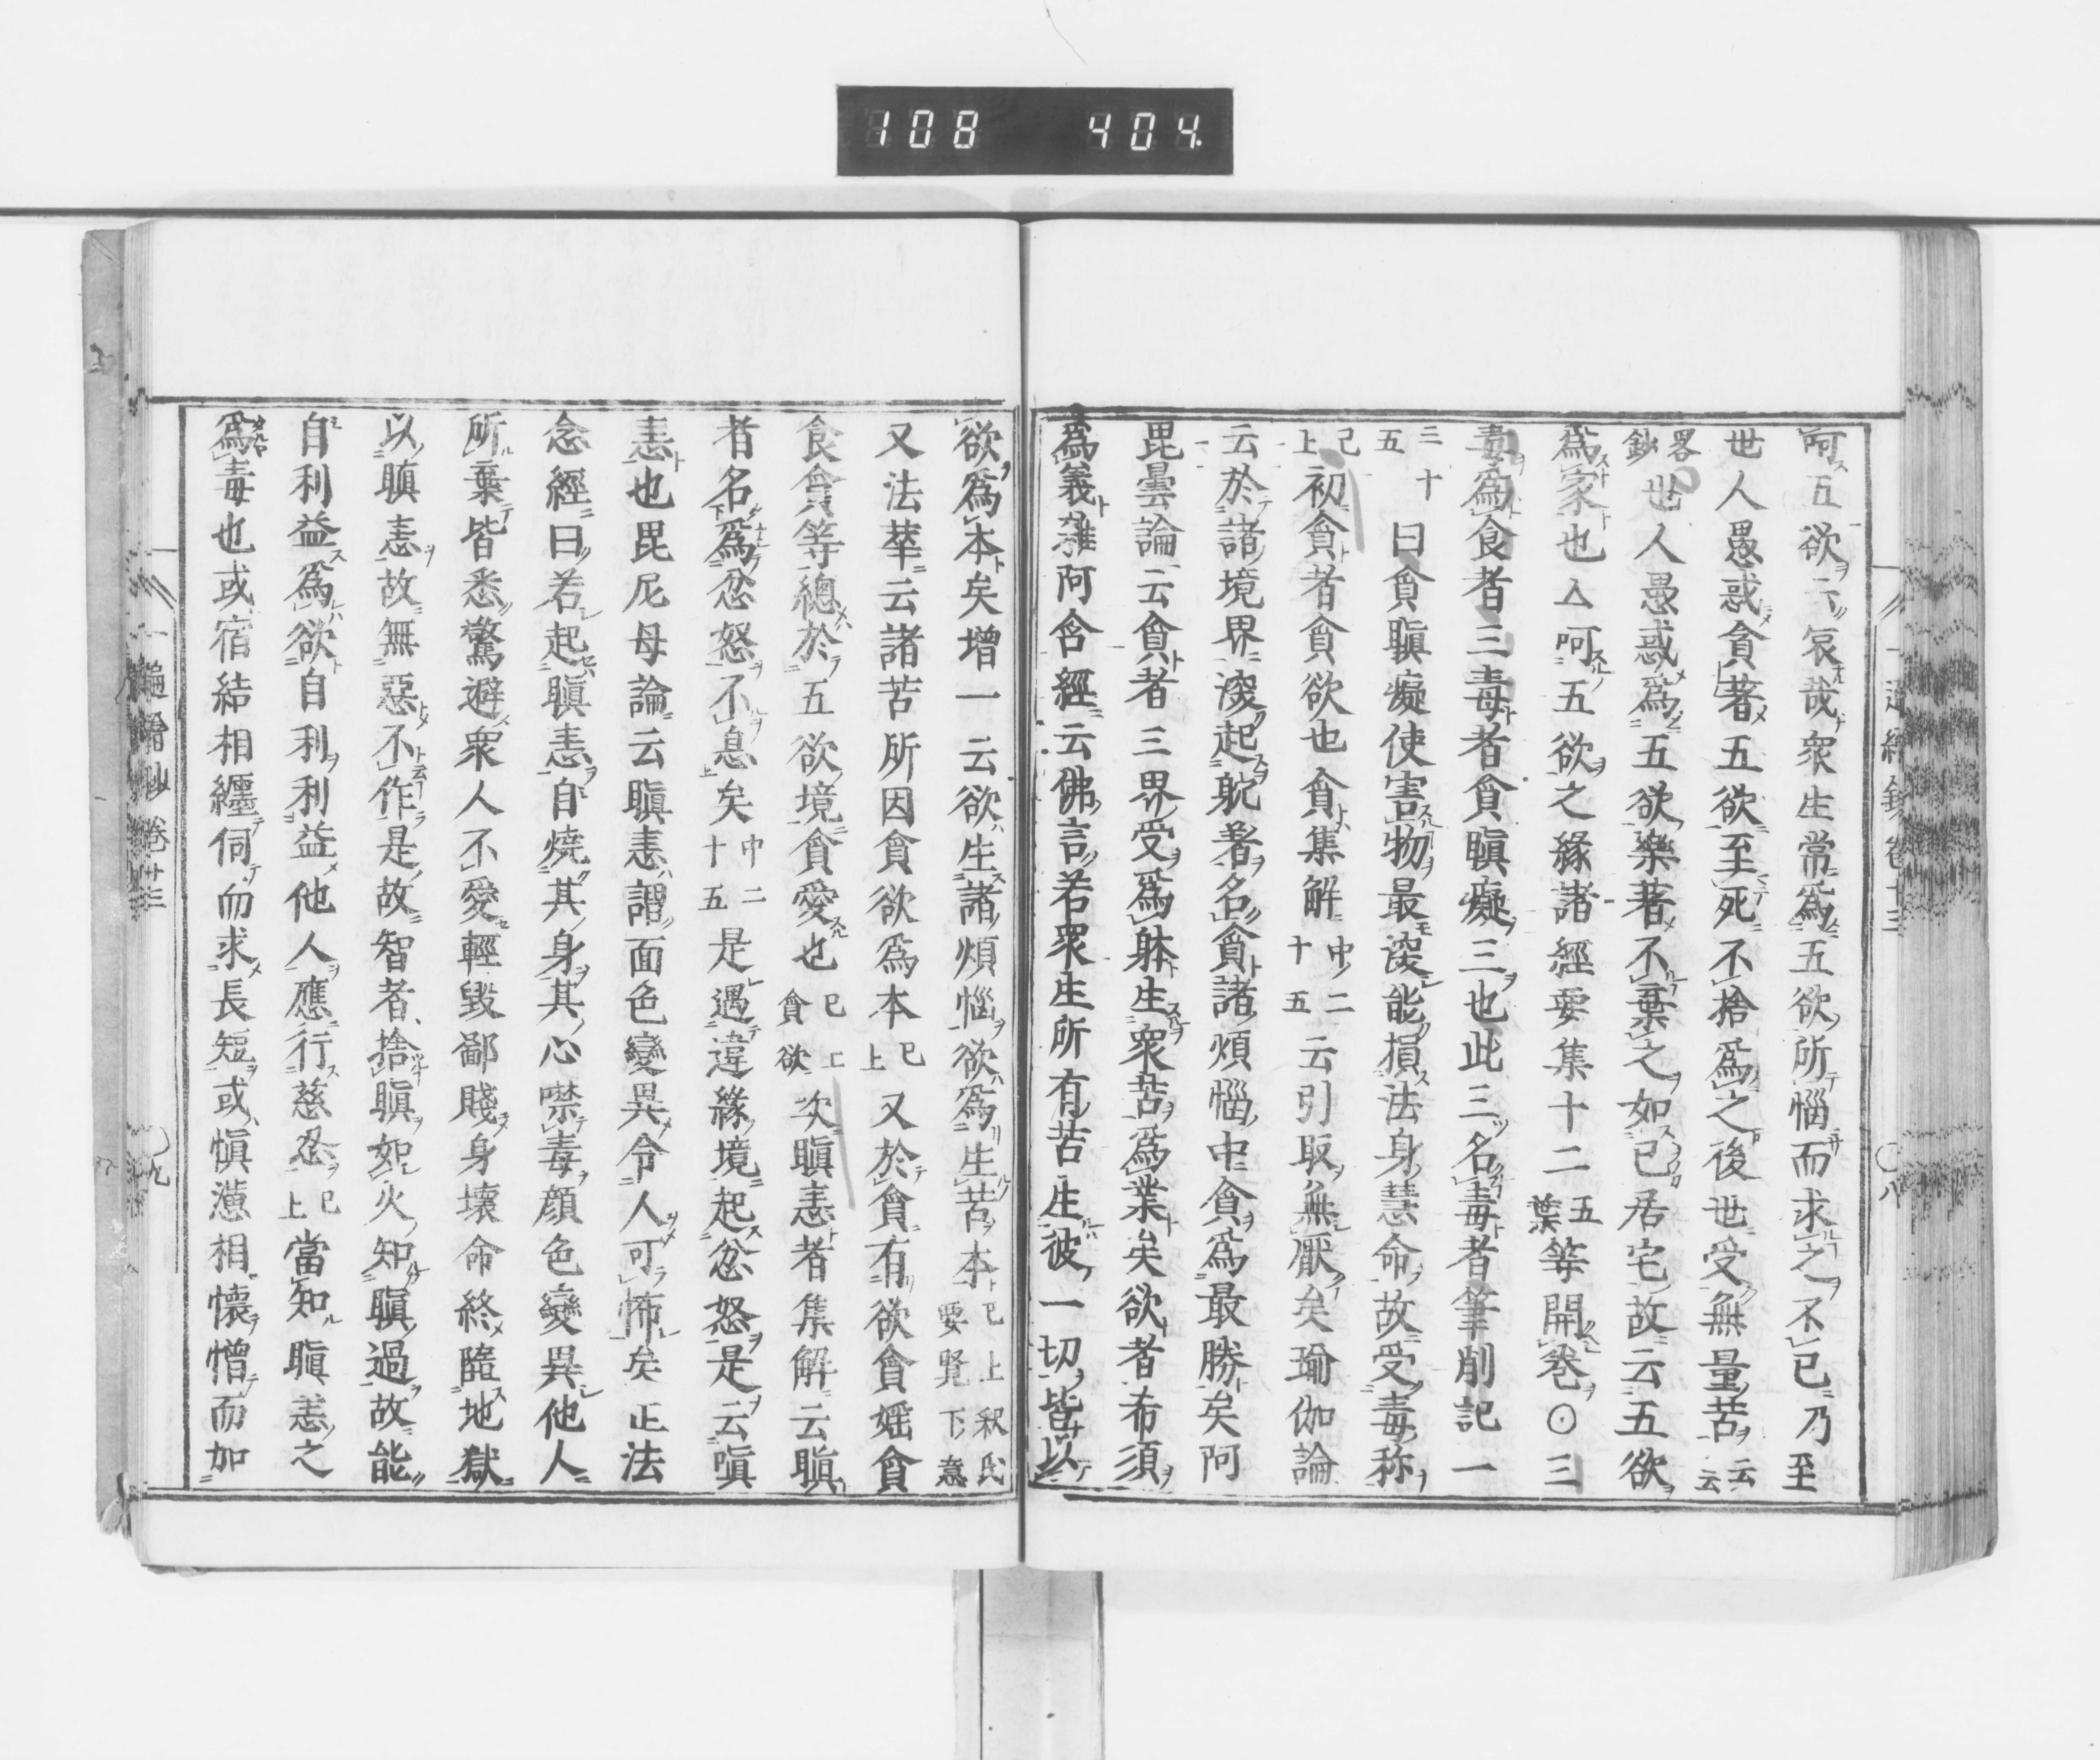 108 404.
呵五欲云哀哉衆生常爲五欲所惱而求之不已乃至
世人愚惑貪著五欲至死不捨爲之後世受無量苦云云
畧鈔世人愚惑爲五欲樂著不棄之如已居宅故云五欲
爲家也△呵五欲之緣諸經要集十二五葉等開卷○三
毒爲食者三毒者貪瞋癡三也此三名毒者筆削記一
三十五曰貪瞋癡使害物最深能損法身慧命故受毒称
已上初貪者貪欲也貪集解中二十五云引取無厭矣瑜伽論
云於諸境界深起躭著名貪諸煩惱中貪爲最勝矣阿
毘曇論云貪者三界受爲躰生衆苦爲業矣欲者希須
爲義雜阿含經云佛言若衆生所有苦生彼一切皆以
欲爲本矣增一云欲生諸煩惱欲爲生苦本已上釈氏要覧下意
又法華云諸苦所因貪欲爲本已上又於貪有欲貪婬貪
食貪等總於五欲境貪愛也已上貪欲次瞋恚者集解云瞋
者名爲忿怒不息矣中二十五是遇違緣境起忿怒是云嗔
恚也毘尼母論云瞋恚謂面色變異令人可怖矣正法
念經曰若起瞋恚自燒其身其心噤毒顔色變異他人
所棄皆悉驚避衆人不愛輕毀鄙賤身壞命終墮地獄
以瞋恚故無惡不作是故智者捨瞋如火知瞋過故能
自利益爲欲自利利益他人應行慈忍已上當知瞋恚之
爲毒也或宿結相纏伺而求長短或慎懣相懐憎而加
卷十三
八
卷十三
九